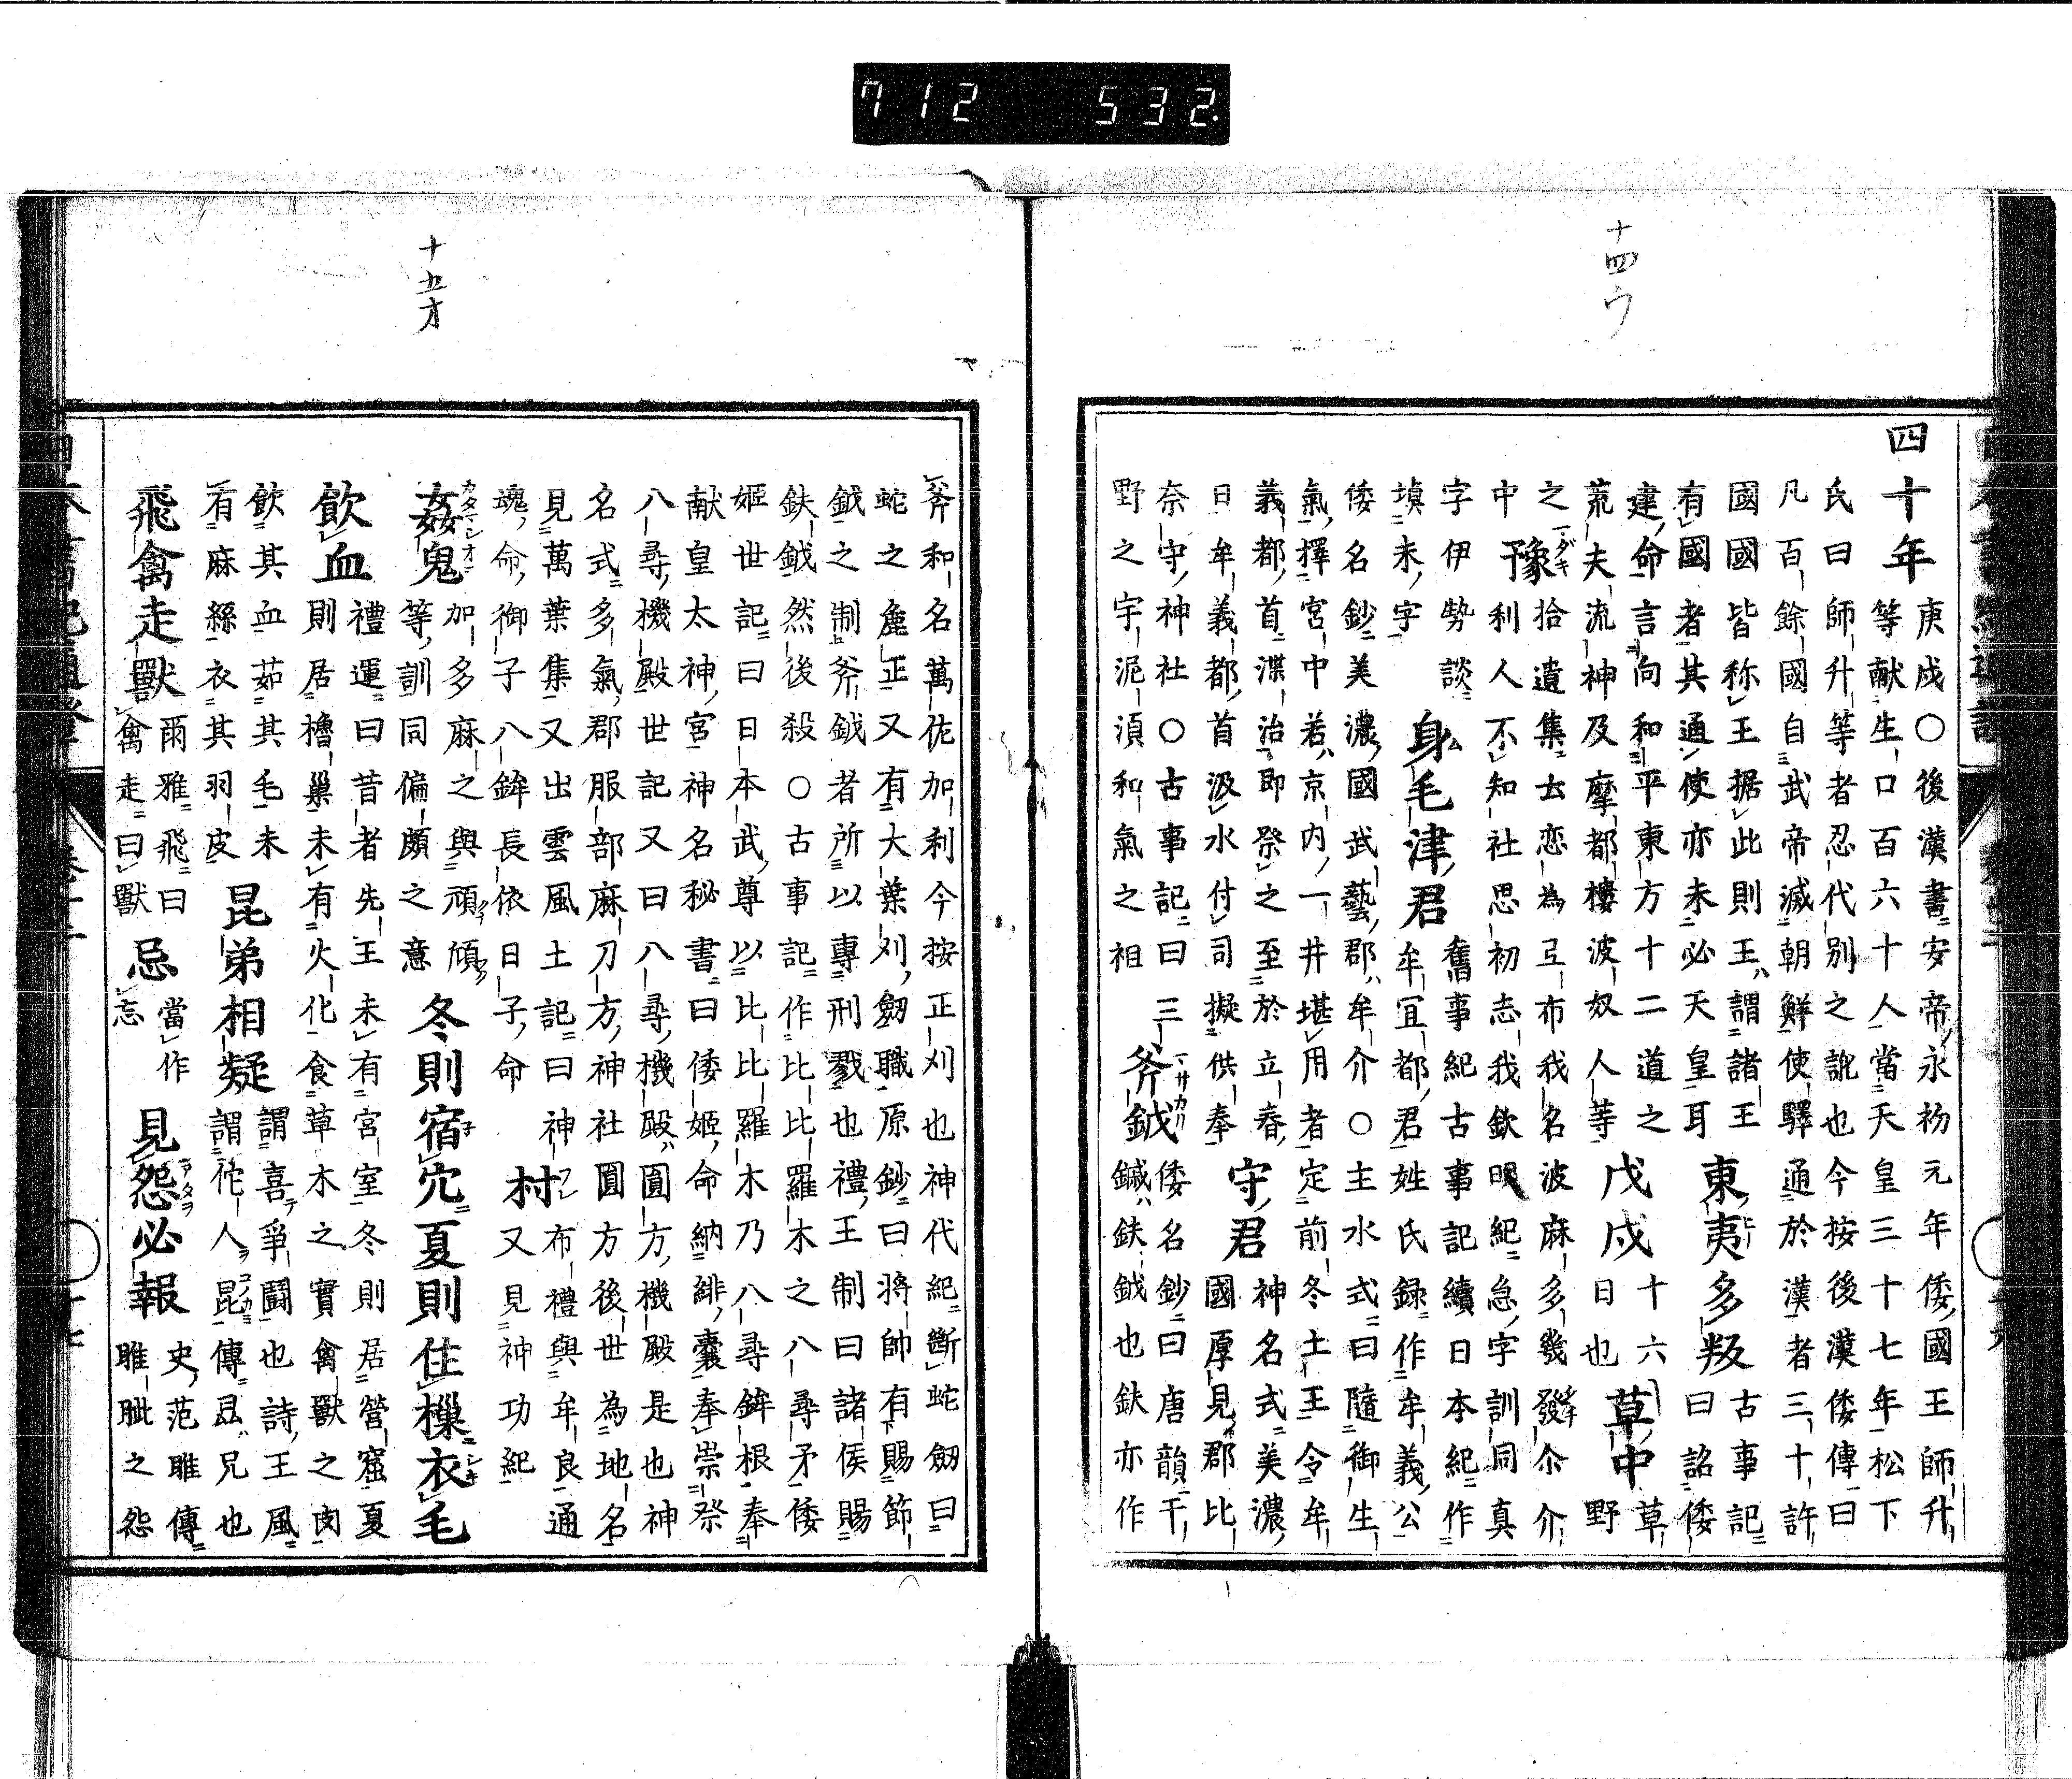 十四ウ
四十年
庚戌〇後漢書安帝永初元年倭國王師升
等献生口百六十人當天皇三十七年松下
氏曰師升等者忍代別之訛也今按後漢倭傳曰
凡百餘國自武帝滅朝鮮使驛通於漢者三十許
國國皆称王据此則王謂諸王
有國者其通使亦未必天皇耳
東夷多叛
古事記
曰詔倭
建命言向和平東方十二道之
荒夫流神及摩都樓波奴人等
戊戌
十六
日也
草中
草
野
之
中
豫
于
拾遺集云恋為弖布我名波麻多幾發尒介
利人不知社思初志我欽明紀急字訓同真
字伊勢談
塡未字
身毛津君
舊事紀古事記續日本紀作
牟宜都君姓氏録作牟義公
倭名鈔美濃國武藝郡牟介〇主水式曰隨御生
氣擇宮中若京内一井堪用者定前冬土王令牟
義都首渫治即祭之至於立春
日牟義都首汲水付司擬供奉
守君
神名式美濃
國厚見郡比
奈守神社〇古事記曰三
野之宇泥須和氣之祖
斧鉞
倭名鈔曰唐韻干
鏚鈇鉞也鈇亦作
十五オ
斧和名萬佐加利今按正刈也神代紀斷蛇劔曰
蛇之麁正又有大葉刈劔職原鈔曰將帥有賜節
鉞之制斧鉞者所以專刑戮也禮王制曰諸侯賜
鈇鉞然後殺〇古事記作比比羅木之八尋矛倭
姬世記曰日本武尊以比比羅木乃八尋鉾根奉
献皇太神宮神名秘書曰倭姬命納緋囊奉崇祭
八尋機殿世記又曰八尋機殿圓方機殿是也神
名式多氣郡服部麻刀方神社圓方後世為地名
見萬葉集又出雲風土記曰神
魂命御子八鉾長依日子命
村
布禮與牟良通
又見神功紀
姦鬼
加多麻之與頑
等訓同偏頗之意
冬則宿穴夏則住樔衣毛
飲血
禮運曰昔者先王未有宮室冬則居營窟夏
則居橧巢未有火化食草木之實禽獸之肉
飲其血茹其毛未
有麻絲衣其羽皮
昆弟相疑
謂喜爭鬪也詩王風
謂佗人昆傳昆兄也
飛禽走獸
爾雅飛曰
禽走曰獸
忌
當作
忘
見怨必報
史范雎傳
睚眦之怨